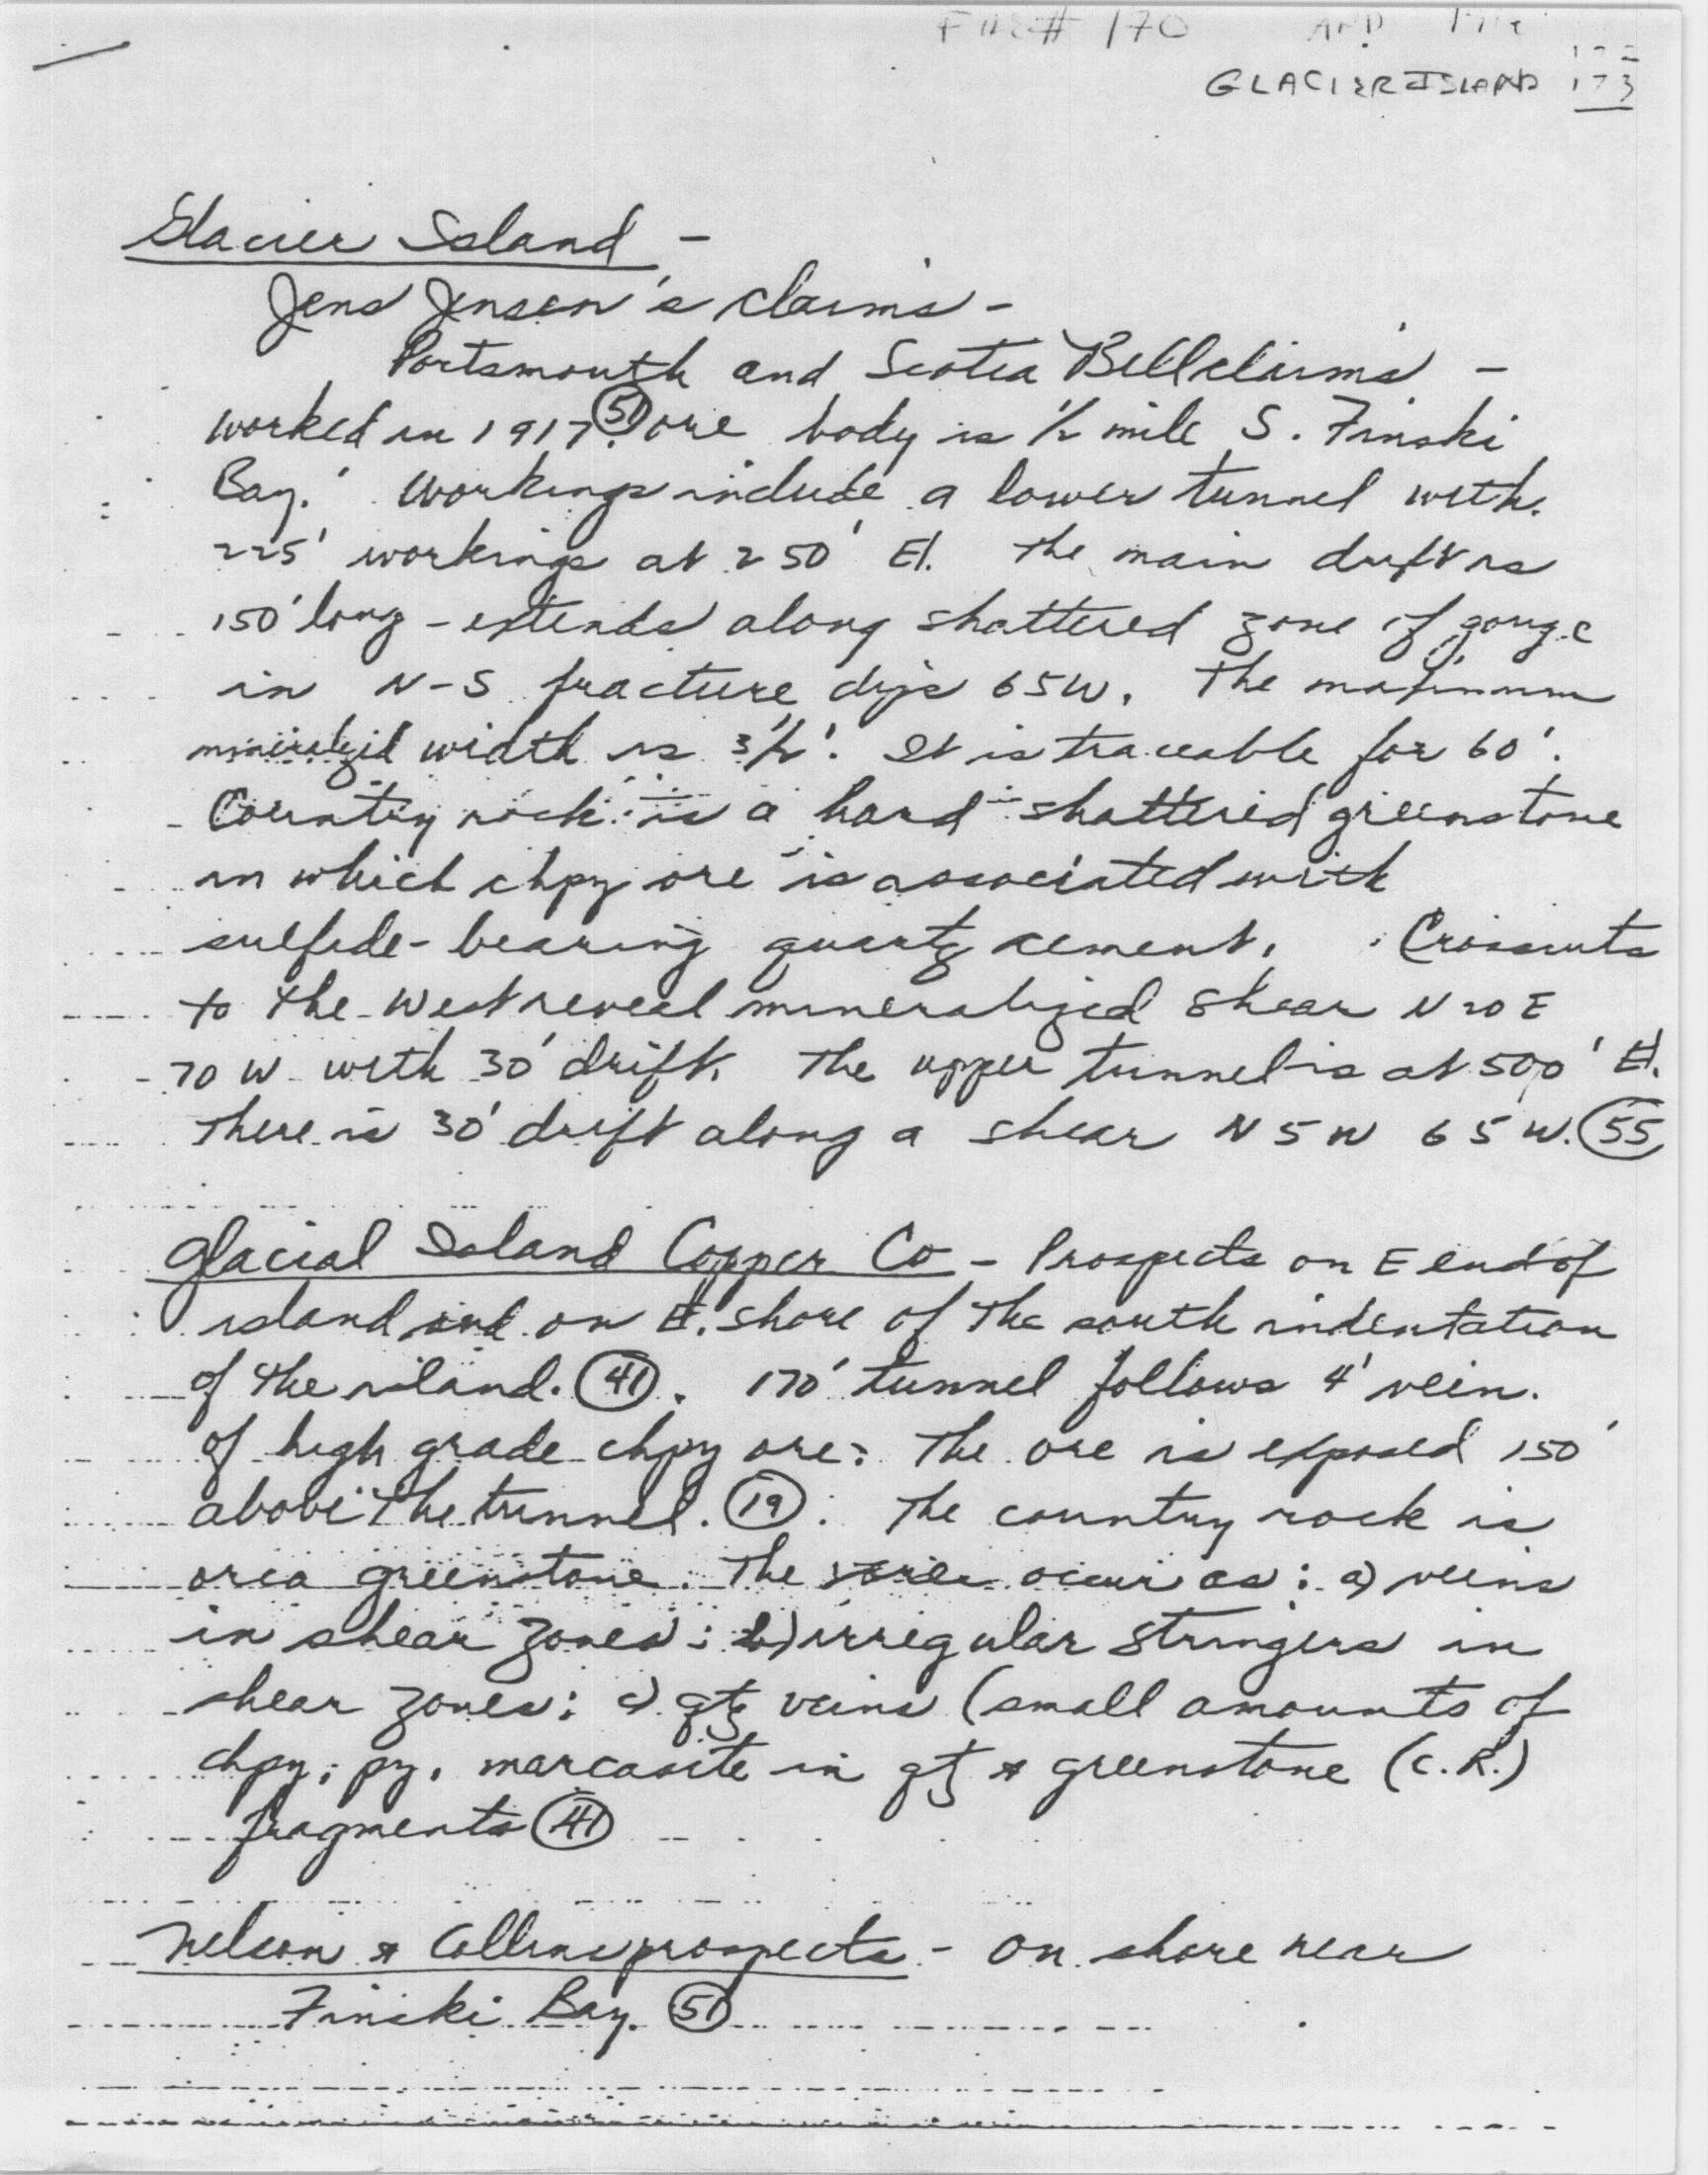 FILE# 170 AND
GLACIER ISLAND 173
Glacier Island -
Jens Jensen's claims -
Portsmouth and Scotia Bell claims -
worked in 1917. (51) ore body is 1/2 mile S. Finski
Bay. Workings include a lower tunnel with
225' workings at 250' El. The main drift is
150' long - extends along shattered zone of gouge
in N-S fracture dips 65W. The maximum
mineralized width is 3 1/2'. It is traceable for 60'.
Country rock is a hard shattered greenstone
in which chpy ore is associated with
sulfide-bearing quartz cement. Crosscuts
to the west reveal mineralized shear N20E
70W with 30' drift. The upper tunnel is at 500' El.
There is 30' drift along a shear N5W 65W. (55)
Glacial Island Copper Co - Prospects on E end of
island and on E. shore of the south indentation
of the island. (41). 170' tunnel follows 4' vein
of high grade chpy ore. The ore is exposed 150'
above the tunnel. (19). The country rock is
orca greenstone. The ores occur as: a) veins
in shear zones; b) irregular stringers in
shear zones; c) qtz veins (small amounts of
chpy, py, marcasite in qtz & greenstone (c.R.)
fragments (41)
Nelson & Collins prospects - On shore near
Finski Bay. (51)